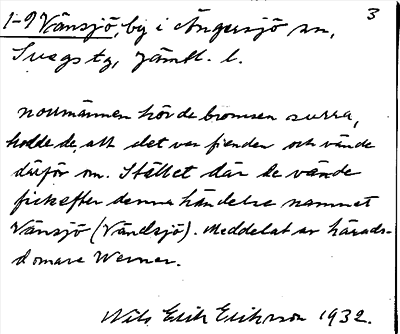 3
1-9 Vänsjö, by i Ängersjö sn,
Svegs tg, Jämtl. l.
norrmännen hörde bromsen surra,
trodde de, att det var fienden och vände
därför om. Stället där de vände
fick efter denna händelse namnet
Vänsjö (Vändsjö). Meddelat av härads-
domare Werner.
Nils Erik Erikson 1932.